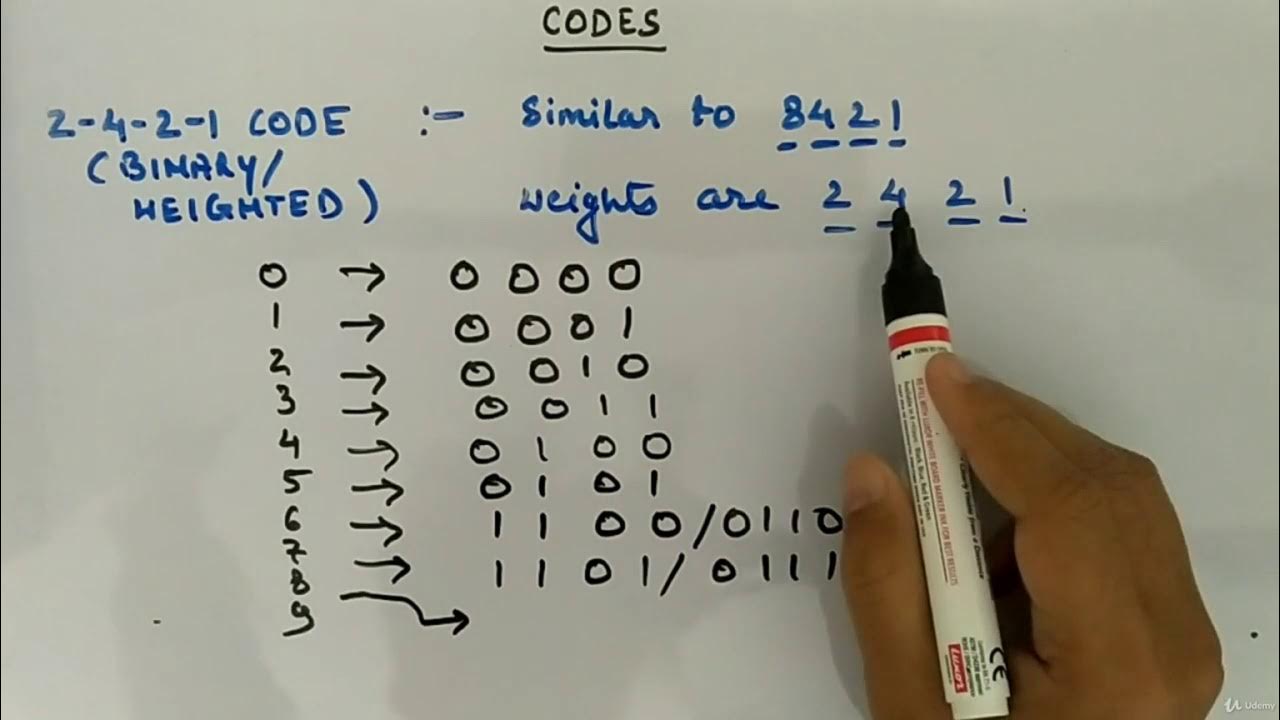 CODES
2-4-2-1 CODE :- Similar to 8421
(BINARY/
WEIGHTED) weights are 2 4 2 1
0 → 0 0 0 0
1 → 0 0 0 1
2 → 0 0 1 0
3 → 0 0 1 1
4 → 0 1 0 0
5 → 0 1 0 1
6 → 1 1 0 0/0110
7 → 1 1 0 1/0111
8 →
9
LUXOR
CE
Udemy